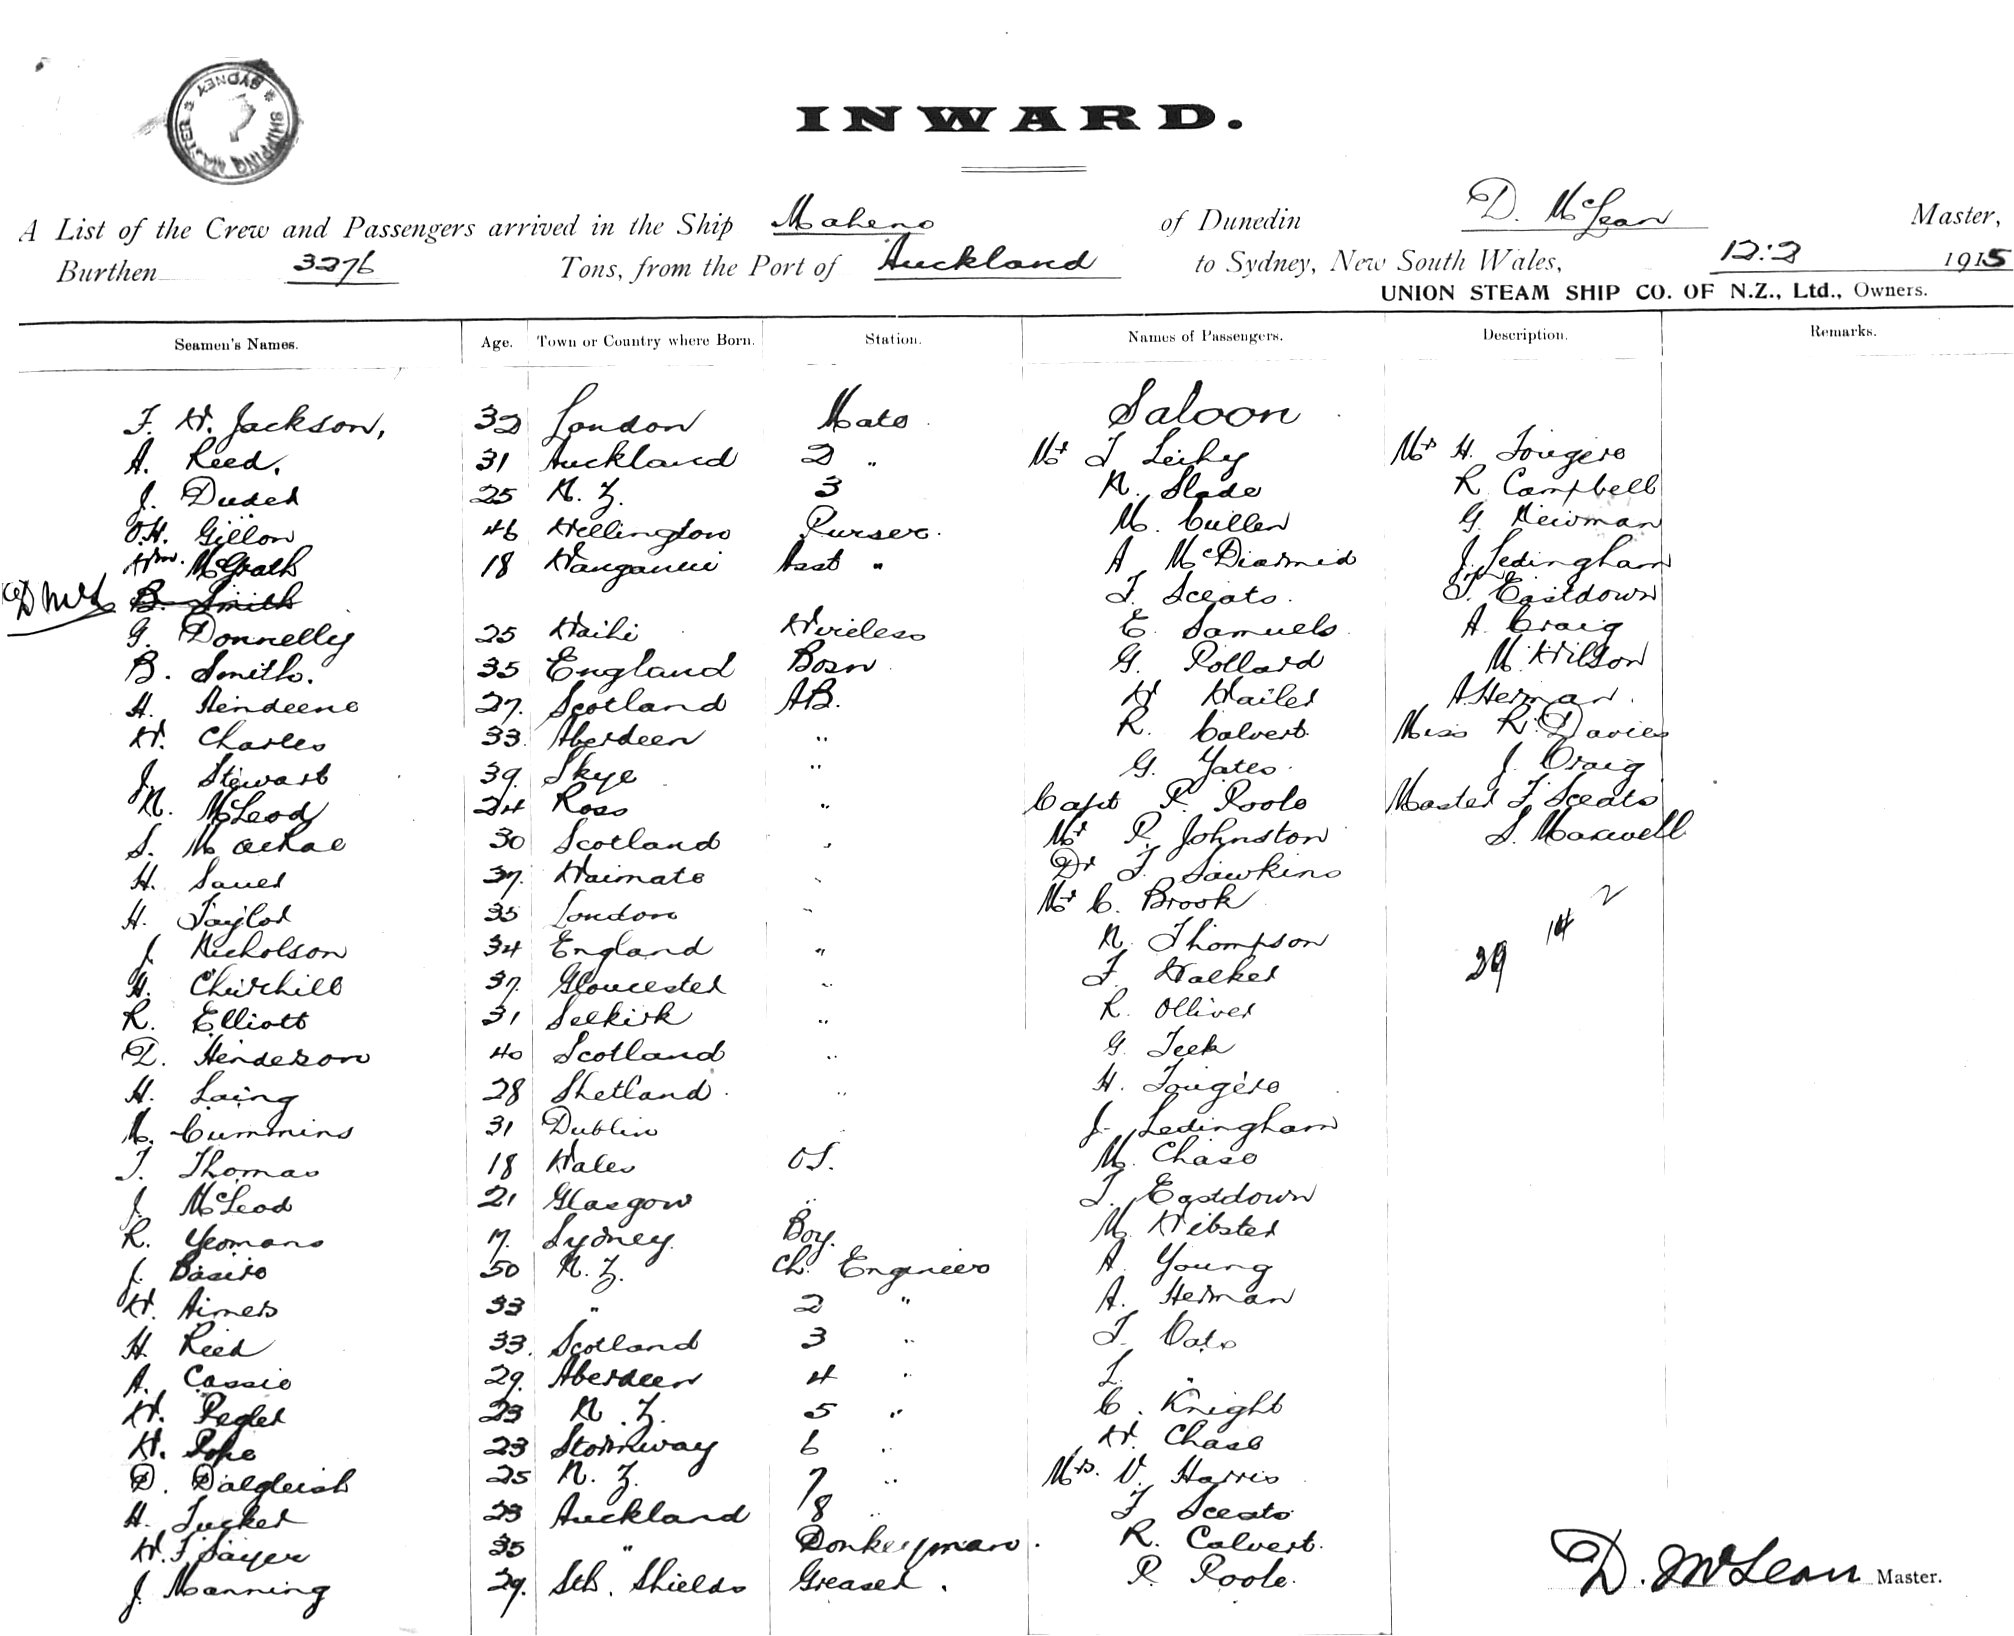 SHIPPING MASTER SYDNEY
INWARD.
A List of the Crew and Passengers arrived in the Ship Maheno of Dunedin D. McLean Master,
Burthen 3276 Tons, from the Port of Auckland to Sydney, New South Wales, 12:2 1915
UNION STEAM SHIP CO. OF N.Z., Ltd., Owners.
Seamen's Names. Age. Town or Country where Born. Station. Names of Passengers. Description. Remarks.
F. W. Jackson, 32 London Mate Saloon
A. Reed. 31 Auckland 2 " Mr T Leihy Mr H. Fougere
J. Duder 25 N. Z. 3 N. Slade R Campbell
O.H. Gillon 46 Wellington Purser. M. Cullen G Newman
Wm. McGrath 18 Wanganui Asst " A McDiarmid J. Ledingham
B. Smith T. Sceats. T. Eastdown
G. Donnelly 25 Waihi Wireless E. Samuels A Craig
B. Smith. 35 England Bosn G. Pollard M. Wilson
H. 27. Scotland AB. W Wailes A Herman.
W. Charles 33. Aberdeen " R. Calvert. Miss R. Davies
J. Stewart 39. Skye " G. Yates. J. Craig
N. McLeod 24 Ross " Capt P. Poole Master T Sceats
S. MacRae 30 Scotland " Mr P. Johnston S. Maxwell
H. Sauer 37. Waimate " Dr T. Hawkins
H. Taylor 35 London " Mr C. Brook
J. Nicholson 34 England " N. Thompson 29 14 2
H. Churchill 37. Gloucester " F Walker
R. Elliott 31 Selkirk " R. Olliver
D. Henderson 40 Scotland " G. Teek
H. Laing 28 Shetland " H. Fougere
M. Cummins 31 Dublin J. Ledingham
T. Thomas 18 Wales OS. M. Chase
J. McLeod 21 Glasgow " T. Eastdown
R. Yeomans 17. Sydney. Boy. M. Webster
J. 50 N. Z. Ch. Engineer A. Young
W. Aimers 33 " 2 " A. Herman
H. Reed 33. Scotland 3 " T. Oats
A. Cassie 29. Aberdeen 4 " L. "
W. Pegler 23 N. Z. 5 " C. Knight
W. Pope 23 Stornway 6 " W. Chase
D. Dalgleish 25 N. Z. 7 " Mrs. V. Harris
H. Tucker 23 Auckland 8 " T Sceats
W. F Sayer 35 " Donkeyman. R. Calvert.
J. Manning 29. Sth. Shields Greaser. P. Poole.
D. McLean Master.